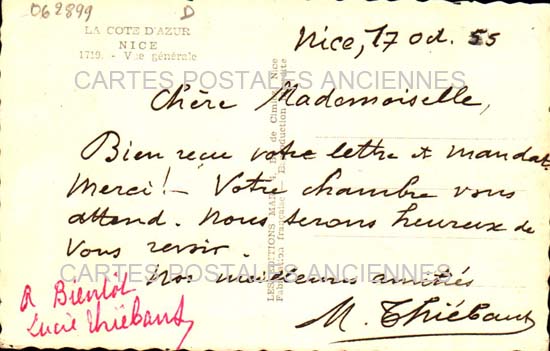 062899
D
LA COTE D'AZUR
NICE
1710. - Vue générale
Nice, 17 oct. 55
CARTES POSTALES ANCIENNES
Chère Mademoiselle,
Bien reçu votre lettre & mandat
Merci! - Votre chambre vous
attend. Nous serons heureux de
vous revoir.
CARTES POSTALES ANCIENNES
Nos meilleures amitiés
M. Thiébaut
A Bientôt
Lucie Thiébaut
LES EDITIONS Nice
Fabrication française - Reproduction interdite